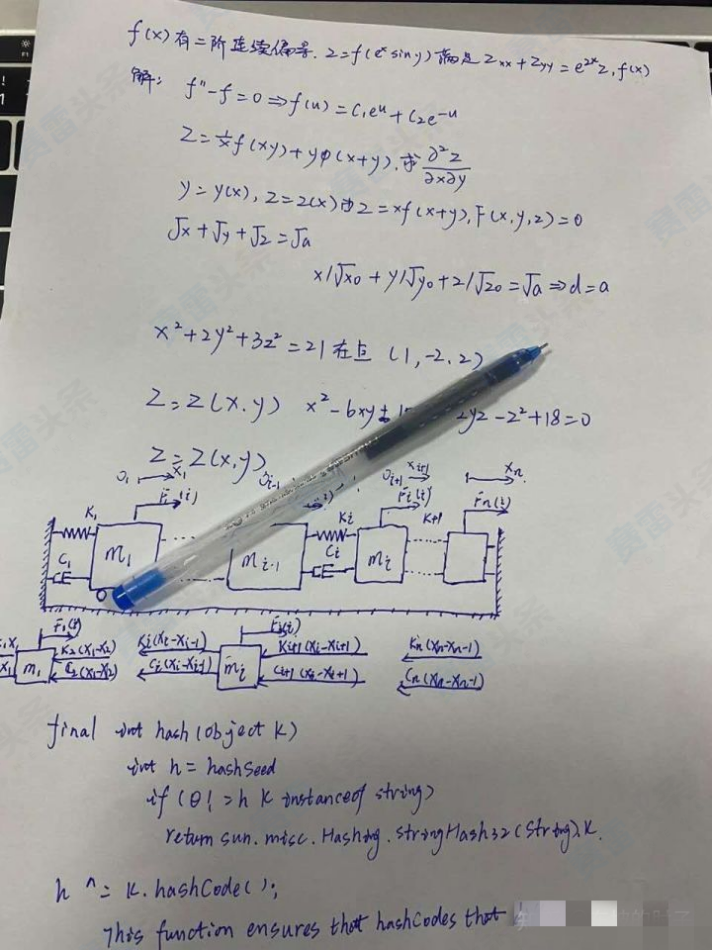 f(x)有二阶连续偏导. z=f(eˣ sin y)满足 Zxx+Zyy=e²ˣz, f(x)
解: f''-f=0 ⇒ f(u)=C₁eᵘ+C₂e⁻ᵘ
Z=1/x f(xy)+yφ(x+y). 求 ∂²z/∂x∂y
y=y(x), z=z(x)由z=xf(x+y), F(x,y,z)=0
√x+√y+√z=√a
x/√x₀+y/√y₀+z/√z₀=√a ⇒ d=a
x²+2y²+3z²=21在点 (1,-2,2)
Z=Z(x.y) x²-6xy+1 2yz-z²+18=0
Z=Z(x,y)
O₁ X₁ Oᵢ₋₁ Oᵢ₊₁ Xᵢ₊₁ Xₙ
K₁ F₁(t) Kᵢ Fᵢ(t) K+1 Fₙ(t)
C₁ m₁ mᵢ₋₁ Cᵢ mᵢ
F₁(t) Fᵢ(t)
K₂(X₁-X₂) Kᵢ(Xᵢ-Xᵢ₋₁) Kᵢ₊₁(Xᵢ-Xᵢ₊₁) Kₙ(Xₙ-Xₙ₋₁)
X₁ m₁ C₂(X₁-X₂) Cᵢ(Xᵢ-Xᵢ₋₁) mᵢ Cᵢ₊₁(Xᵢ-Xᵢ₊₁) Cₙ(Xₙ-Xₙ₋₁)
final int hash(object K)
int h = hashSeed
if (0! = h K instanceof string)
return sun.misc.Hashing.stringHash32(String).K.
h ^= K.hashCode();
This function ensures that hashCodes that